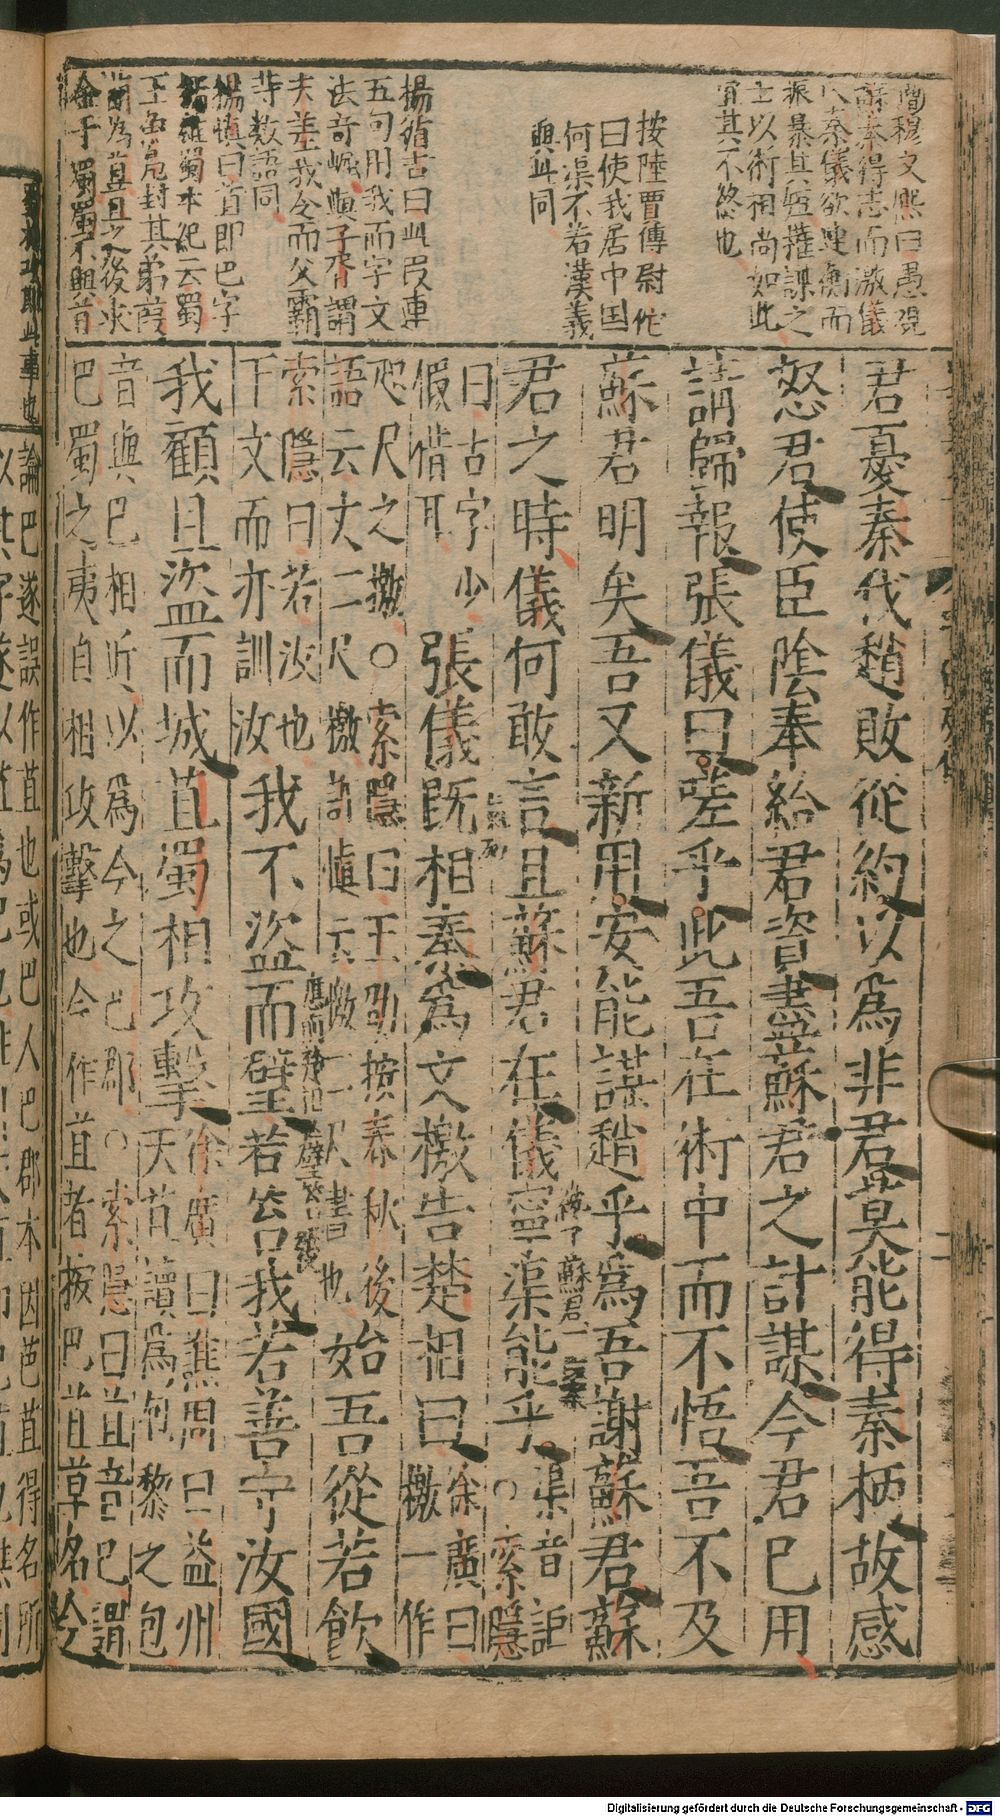 曹穆文熙曰愚視
蘇秦得志而激儀
入秦儀欲連衡而
振暴其短權謀之
士以術相尚如此
宜其不終也
按陸賈傳尉佗
曰使我居中国
何渠不若漢義
與此同
楊循吉曰此叚連
五句用我而字文
法奇崛與子胥謂
夫差我令而父霸
等數語同
楊慎曰苴即巴字
揚雄蜀本紀云蜀
王
封其弟葭
萌為苴且之後求
君憂秦伐趙敗從約以爲非君莫能得秦柄故感
怒君使臣隂奉給君資盡蘇君之計謀今君已用
請歸報張儀曰嗟乎此吾在術中而不悟吾不及
蘇君明矣吾又新用安能謀趙乎爲吾謝蘇君蘇
君之時儀何敢言且蘇君在儀寧渠能乎渠音詎○索隱
曰古字少假借耳張儀既相秦爲文檄告楚相曰徐廣曰檄一作
咫尺之檄○索隱曰王劭按春秋後語云丈二尺檄許慎云檄二尺書也始吾從若飲
索隱曰若汝也下文而亦訓汝我不盜而璧若笞我若善守汝國
我顧且盜而城苴蜀相攻擊徐廣曰譙周曰益州天苴讀爲包黎之包
音與巴相近以爲今之巴郡○索隱曰苴音巴謂
巴蜀之夷自相攻擊也今作苴者按巴苴草名今
論巴遂誤作苴也或巴人巴郡本因芭苴得名所
Digitalisierung gefördert durch die Deutsche Forschungsgemeinschaft - DFG